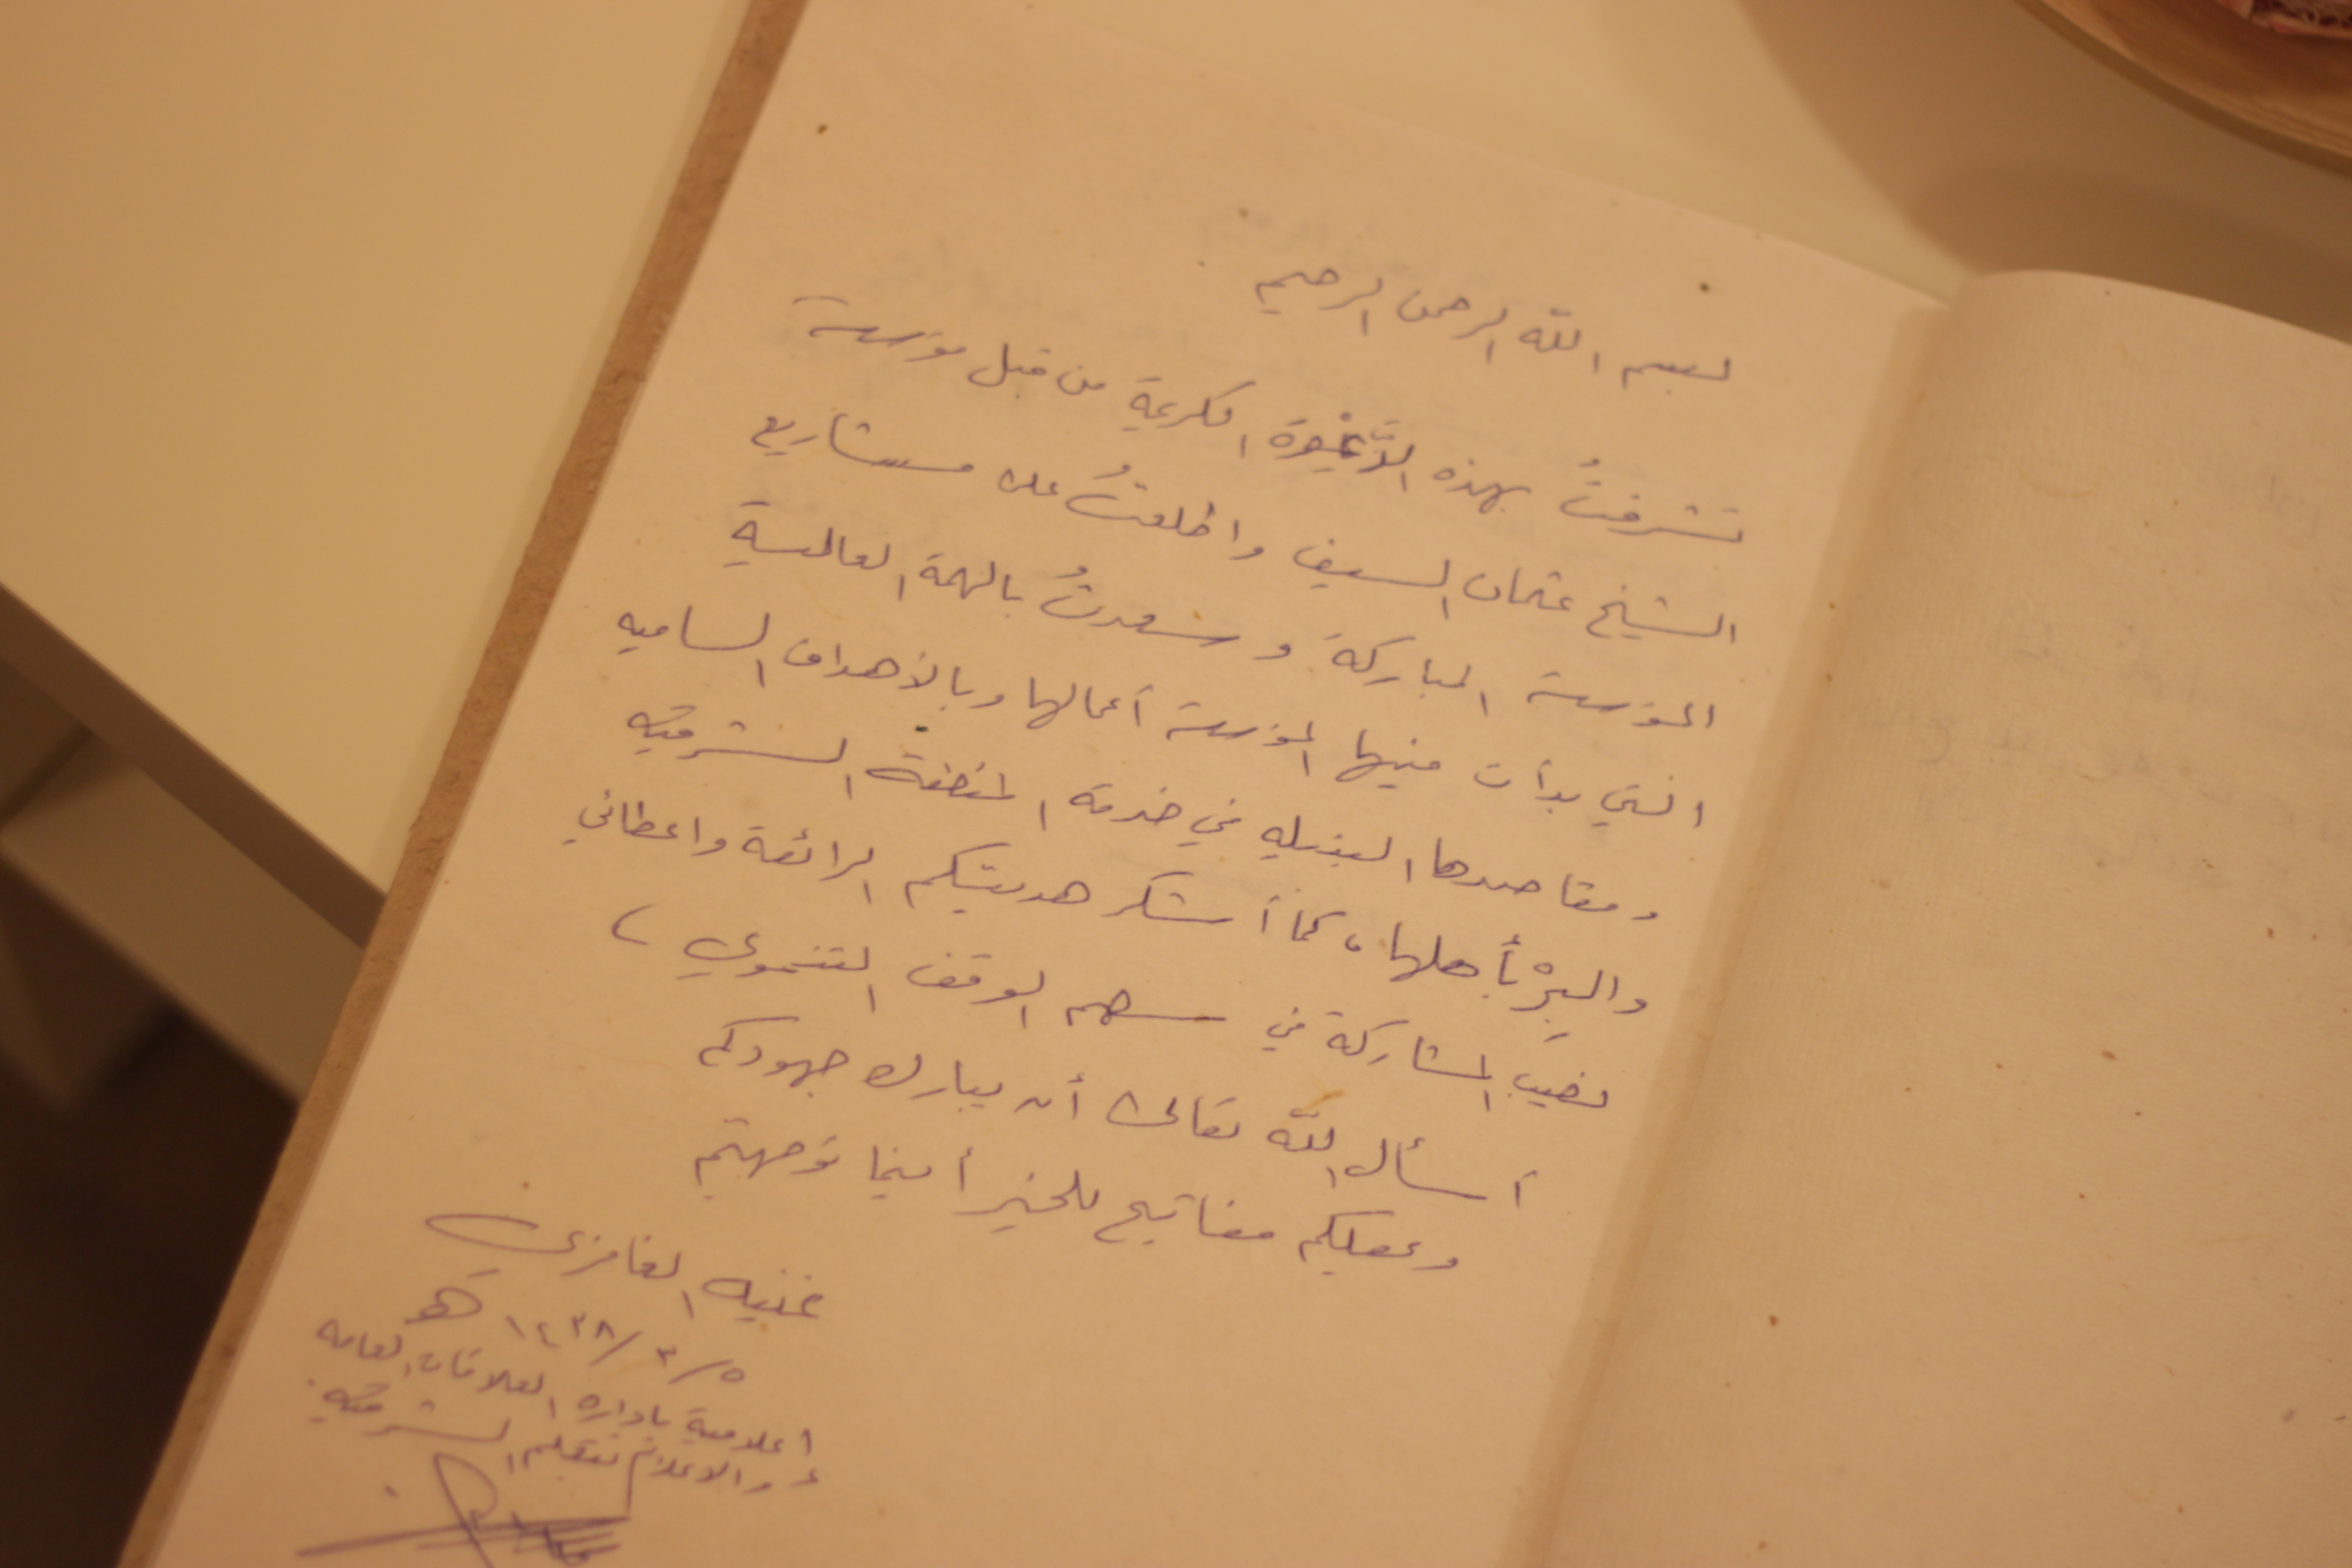 بسم الله الرحمن الرحيم
تشرفتُ بهذه الدَّعْوة الكريمة من قبل مؤسسة
الشيخ عثمان السيف واطلعتُ على مشاريع
المؤسسة المباركة وسعدتُ بالهمة العالية
التي بدأت فيها المؤسسة أعمالها وبالأهداف الساميه
ومقاصدها النبيله في خدمة المنطقة الشرقيه
والبِرْ بأهلها، كما أشكر هديتكم الرائعة واعطائي
نصيب المشاركة في سهم الوقف التنموي،
أسأل الله تعالى أن يبارك جهودكم
وجعلكم مفاتيح للخير أينما توجهتم
غنيه الغامزي
٥/٣/١٤٣٨هـ
إعلامية بإداره العلاقات العامه
والاعلام بتعليم الشرقيه.